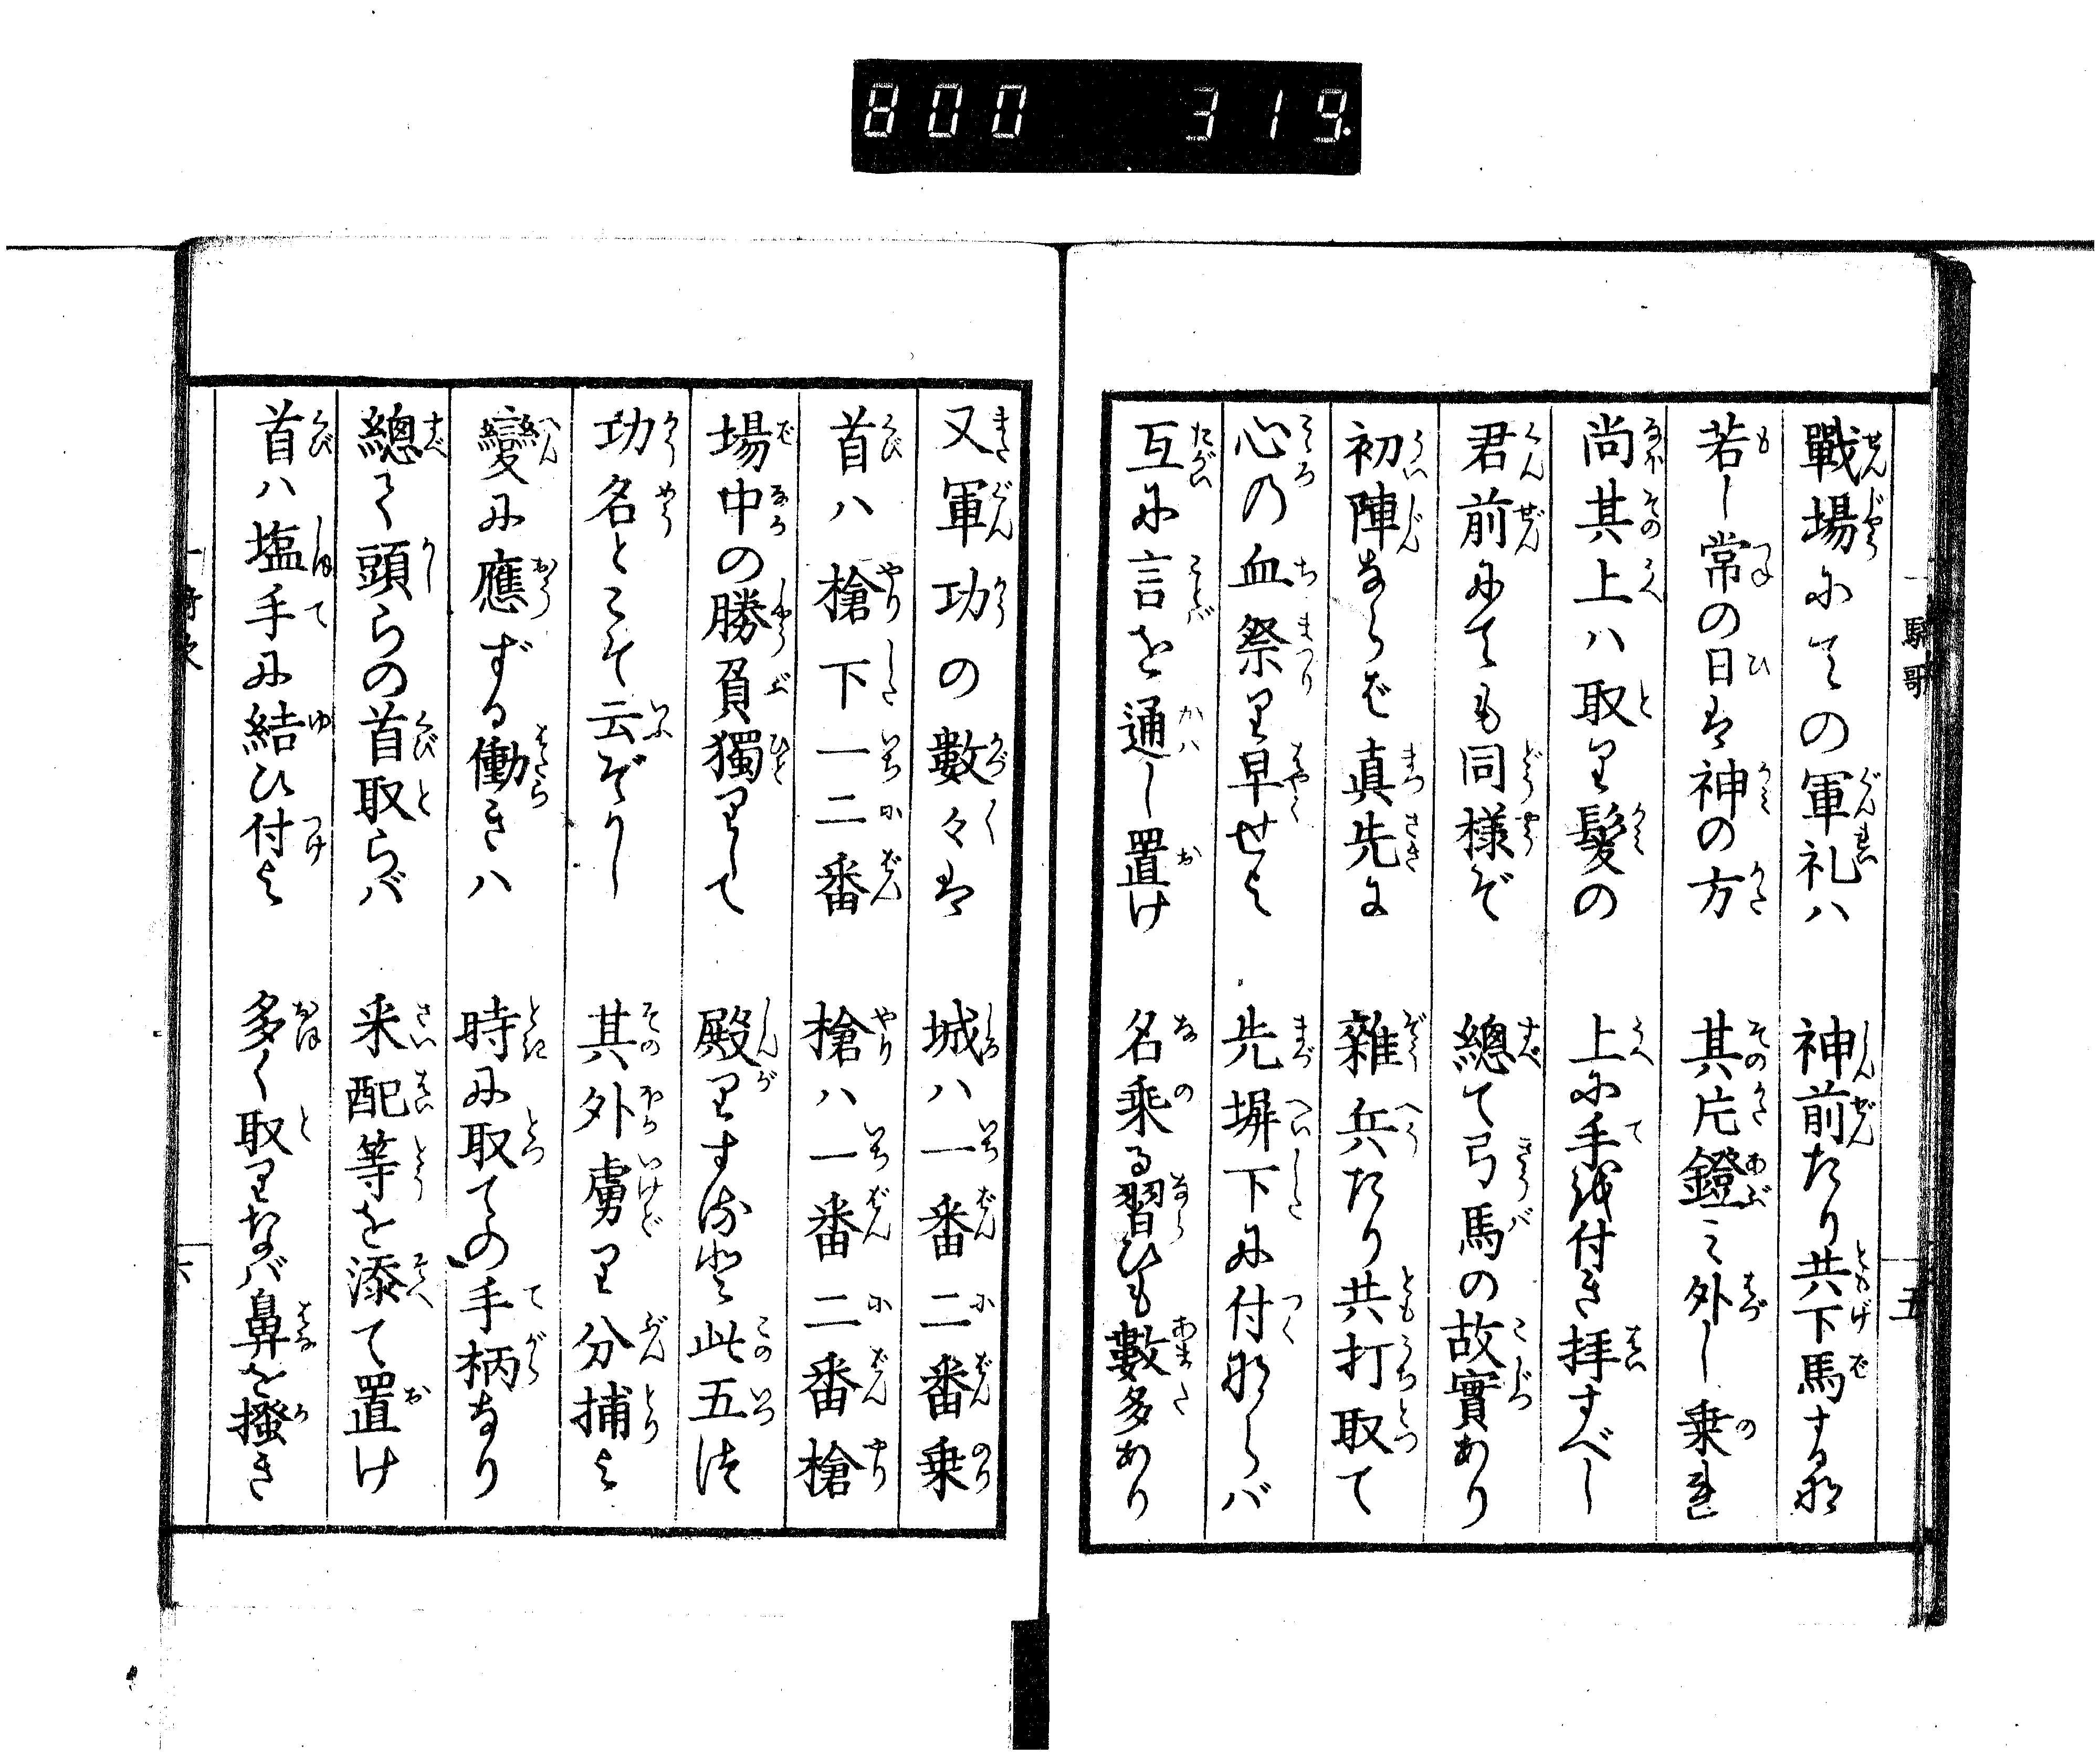 800 319.
一騎歌
五
戰場にての軍礼ハ 神前たり共下馬するな
若し常の日は神の方 其片鐙ミ外し乗れ
尚其上ハ取り髪の 上に手を付き拝すべし
君前にても同様ぞ 總て弓馬の故實あり
初陣ならば真先に 雜兵たり共打取て
心の血祭り早せよ 先塀下に付ならバ
互に言を通し置け 名乗る習ひも數多あり
又軍功の數々は 城ハ一番二番乗
首ハ槍下一二番 槍ハ一番二番槍
場中の勝負獨りして 殿りする此五は
功名とこそ云ぞかし 其外虜り分捕よ
變に應ずる働きハ 時に取ての手柄なり
總て頭らの首取らバ 采配等を添て置け
首ハ塩手に結ひ付よ 多く取りなバ鼻を掻き
六